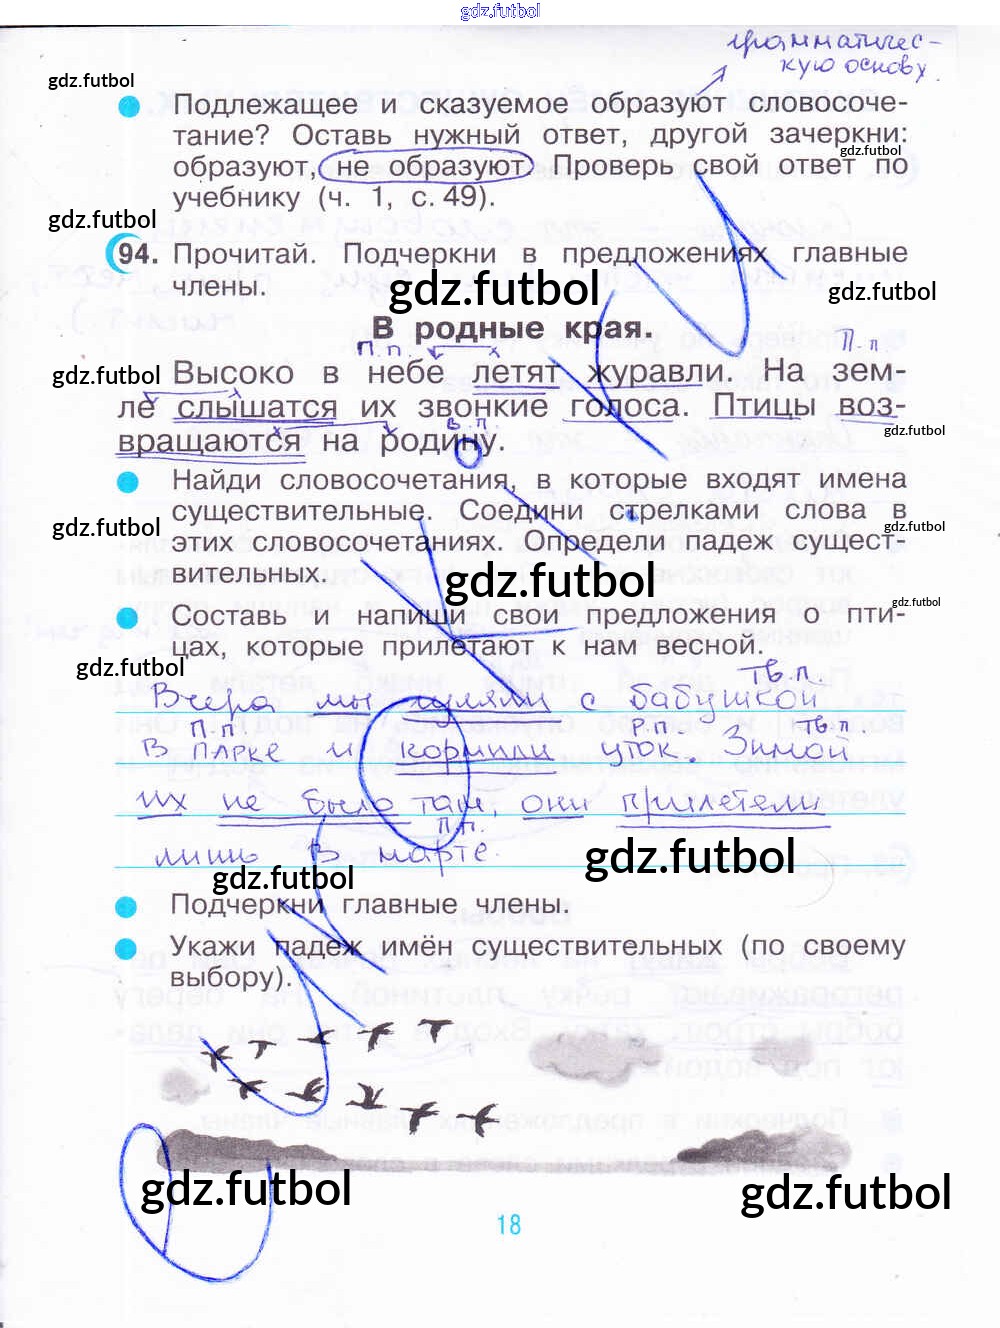 gdz.futbol
грамматичес-
кую основу
gdz.futbol
Подлежащее и сказуемое образуют словосоче-
тание? Оставь нужный ответ, другой зачеркни:
gdz.futbol
образуют, не образуют. Проверь свой ответ по
учебнику (ч. 1, с. 49).
gdz.futbol
94. Прочитай. Подчеркни в предложениях главные
члены.
gdz.futbol
gdz.futbol
В родные края.
П.п.
П.п.
gdz.futbol
Высоко в небе летят журавли. На зем-
ле слышатся их звонкие голоса. Птицы воз-
в.п.
gdz.futbol
вращаются на родину.
Найди словосочетания, в которые входят имена
существительные. Соедини стрелками слова в
gdz.futbol
gdz.futbol
этих словосочетаниях. Определи падеж сущест-
вительных.
gdz.futbol
gdz.futbol
Составь и напиши свои предложения о пти-
цах, которые прилетают к нам весной.
gdz.futbol
Тв.п.
Вчера мы гуляли с бабушкой
П.п Р.п. Тв.п.
в парке и кормили уток. Зимой
их не было там, они прилетели
П.п.
лишь в марте.
gdz.futbol
gdz.futbol
Подчеркни главные члены.
Укажи падеж имён существительных (по своему
выбору).
gdz.futbol
gdz.futbol
18